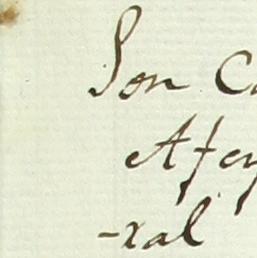 Son C
Afe
-xal